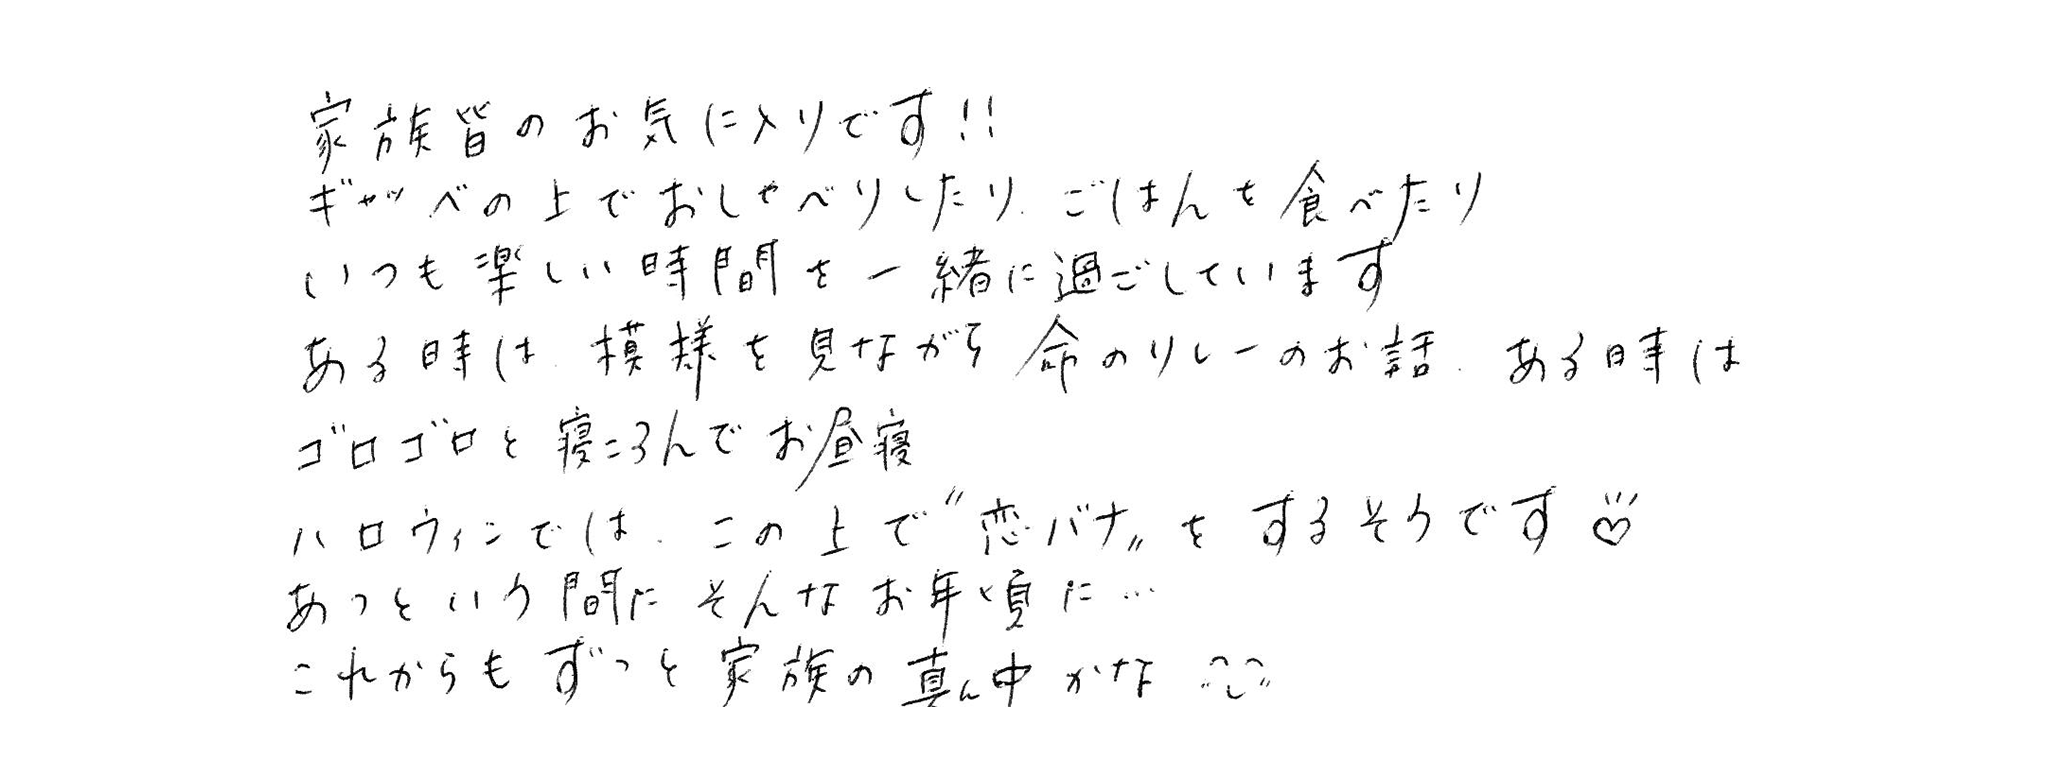 家族皆のお気に入りです!!
ギャッベの上でおしゃべりしたり、ごはんを食べたり
いつも楽しい時間を一緒に過ごしています
ある時は、模様を見ながら命のリレーのお話、ある時は
ゴロゴロと寝ころんでお昼寝
ハロウィンでは、この上で〝恋バナ〟をするそうです♡
あっという間にそんなお年頃に…
これからもずっと家族の真ん中かな